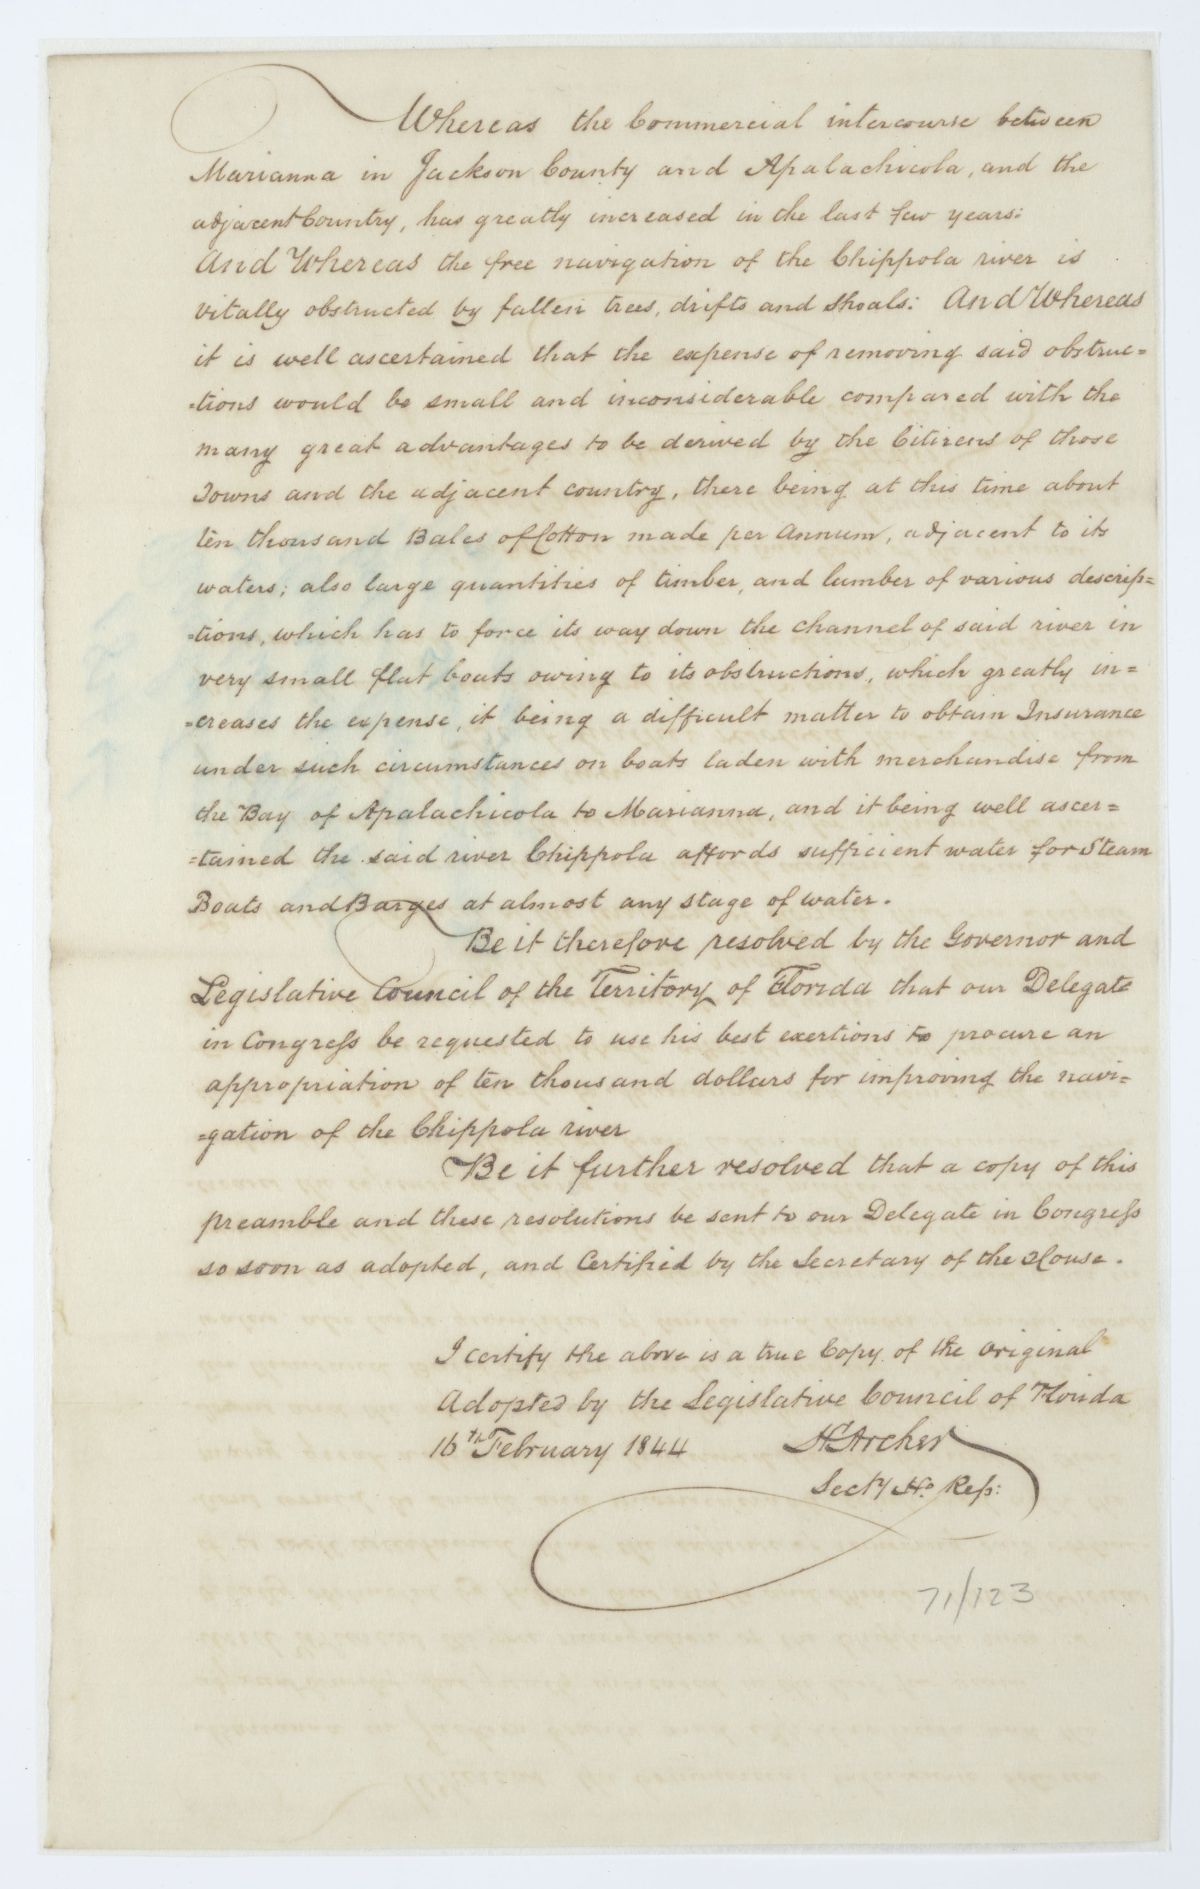 Whereas the Commercial intercourse between
Marianna in Jackson County and Apalachicola, and the
adjacent Country, has greatly increased in the last few years:
And Whereas the free navigation of the Chippola river is
vitally obstructed by fallen trees, drifts and shoals: And Whereas
it is well ascertained that the expense of removing said obstruc=
=tions would be small and inconsiderable compared with the
many great advantages to be derived by the Citizens of those
Towns and the adjacent country, there being at this time about
ten thousand Bales of Cotton made per Annum, adjacent to its
waters; also large quantities of timber, and lumber of various descrip=
=tions, which has to force its way down the channel of said river in
very small flat boats owing to its obstructions, which greatly in=
=creases the expense, it being a difficult matter to obtain Insurance
under such circumstances on boats laden with merchandise from
the Bay of Apalachicola to Marianna, and it being well ascer=
=tained the said river Chippola affords sufficient water for Steam
Boats and Barges at almost any stage of water.
Be it therefore resolved by the Governor and
Legislative Council of the Territory of Florida that our Delegate
in Congress be requested to use his best exertions to procure an
appropriation of ten thousand dollars for improving the navi=
=gation of the Chippola river
Be it further resolved that a copy of this
preamble and these resolutions be sent to our Delegate in Congress
so soon as adopted, and Certified by the Secretary of the House.
I certify the above is a true Copy of the original
Adopted by the Legislative Council of Florida
16th February 1844 H Archer
Secty Ho. Reps:
71/123